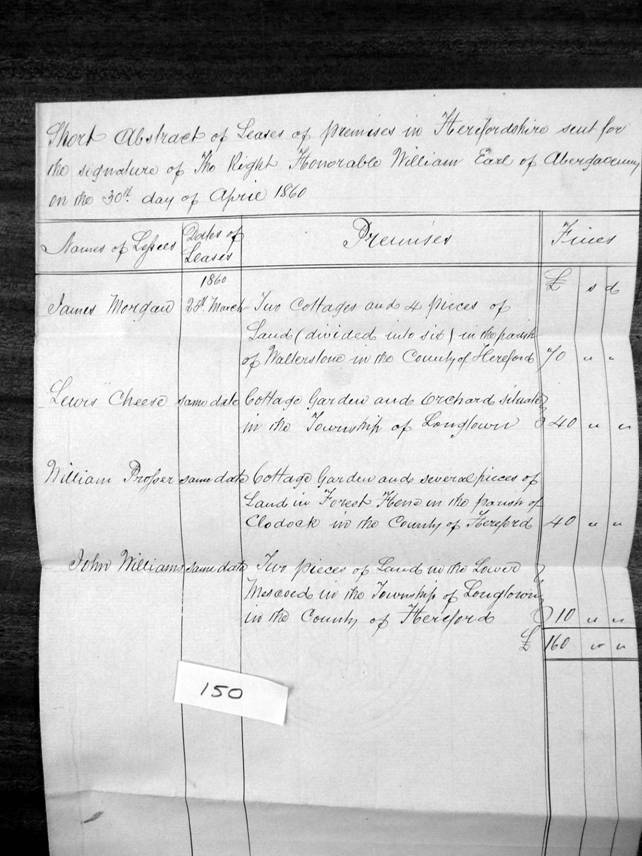 Short Abstract of Leases of premises in Herefordshire sent for
the signature of The Right Honorable William Earl of Abergavenny
on the 30th. day of April 1860
Names of Lessees Dates of Leases Premises Fines
1860 £ s d
James Morgan 28th March Two Cottages and 4 pieces of
Land (divided into six) in the parish
of Walterstone in the County of Hereford 70 " "
Lewis Cheese same date Cottage Garden and Orchard situate
in the Township of Longtown 40 " "
William Prosser same date Cottage Garden and several pieces of
Land in Forest Hene in the parish of
Clodock in the County of Hereford 40 " "
John Williams same date Two pieces of Land in the Lower
in the Township of Longtown
in the County of Hereford 10 " "
£ 160 " "
150